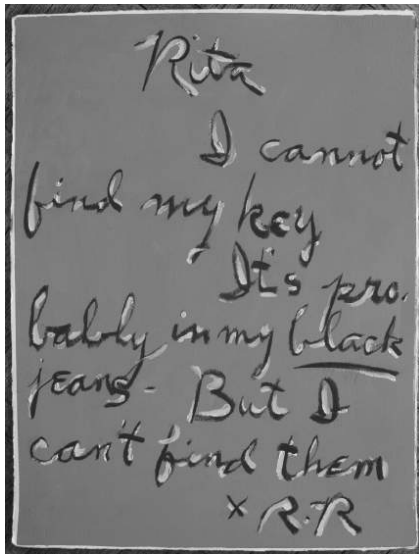 Rita
I cannot
find my key
It's pro.
bably in my black
jeans - But I
can't find them
x R.R